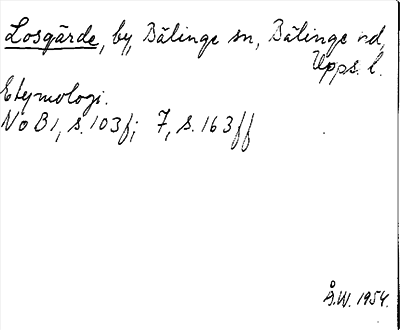 Losgärde, by, Bälinge sn, Bälinge hd,
Upps. l.
Etymologi.
NoB 1, s. 103 f; 7, s. 163 ff
Å.W. 1954.